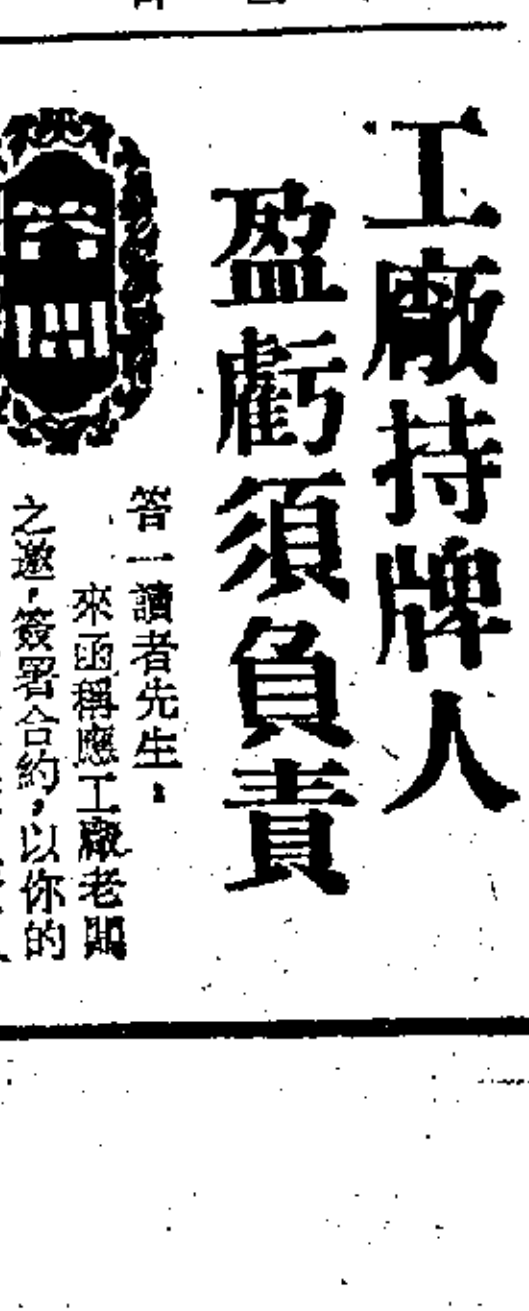 工廠持牌人
盈虧須負責
答一讀者先生：
來函稱應工廠老闆
之邀，簽署合約，以你的